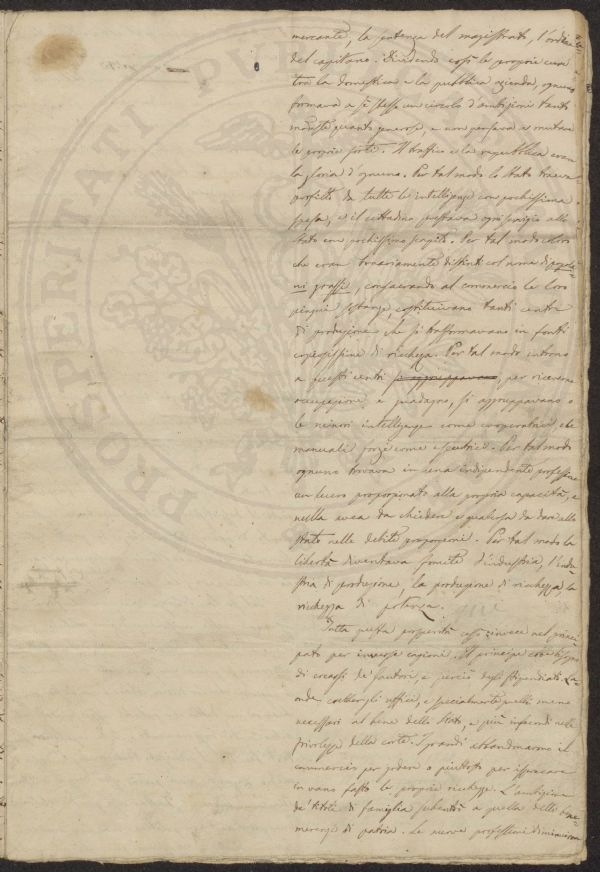 mercante, la potenza del magistrato, l'ordine
del capitano. Dividendo così le proprie cure
tra la domestica e la pubblica azienda, ognuno
formava a sè stesso un circolo d'ambizioni tanto
modeste quanto generose, e non pensava a mutare
le proprie sorti. Il traffico e la repubblica eran
la gloria d'ognuno. Per tal modo lo stato traeva
profitto da tutte le intelligenze con pochissima
spesa, e il cittadino prestava ogni servigio allo
stato con pochissimo scapito. Per tal modo coloro
che eran
distinti col nome di popola-
ni grassi, consacrando al commercio le loro
pingui sostanze, costituivano tanti centri
di produzione che si trasformavano in fonti
copiosissime di ricchezza. Per tal modo intorno
a questi centri per riceverne
occupazione e guadagno, si aggruppavano o
le minori intelligenze come cooperatrici, o le
manuali forze come esecutrici. Per tal modo
ognuno trovava in una indipendente professione
un lucro proporzionato alla propria capacità, e
nulla avea da chiedere e qualcosa da dare allo
stato nelle debite proporzioni. Per tal modo la
libertà diventava fomite d'industria, l'indu-
stria di produzione, la produzione di ricchezza, la
ricchezza di potenza.
Tutta questa prosperità cessò invece nel princi-
pato per inverse cagioni. Il principe ebbe bisogno
di crearsi de' fautori, e perciò degli stipendiati. La-
onde gli uffici, e specialmente quelli meno
necessari al bene dello stato, e più
della corte. I grandi abbandonarono il
commercio per godere o piuttosto per
in vano fasto le proprie ricchezze. L'ambizione
de' titoli di famiglia subentrò a quella delle bene-
merenze di patria. Le nuove professioni diminuirono
PROSPERITATI